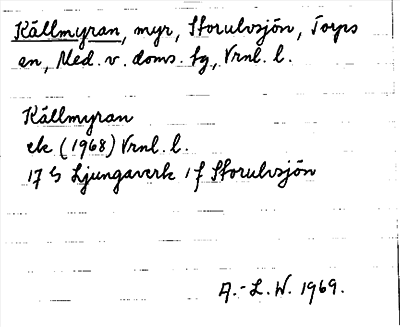 Källmyran, myr, Storulvsjön, Torps
sn, Med. v. doms. fg, Vrnl. l.
Källmyran
ek (1968) Vrnl. l.
17 G Ljungaverk 1 f Storulvsjön
A.-L. W. 1969.